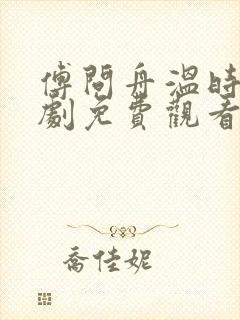 傅問舟溫時
劇免費觀看
喬佳妮